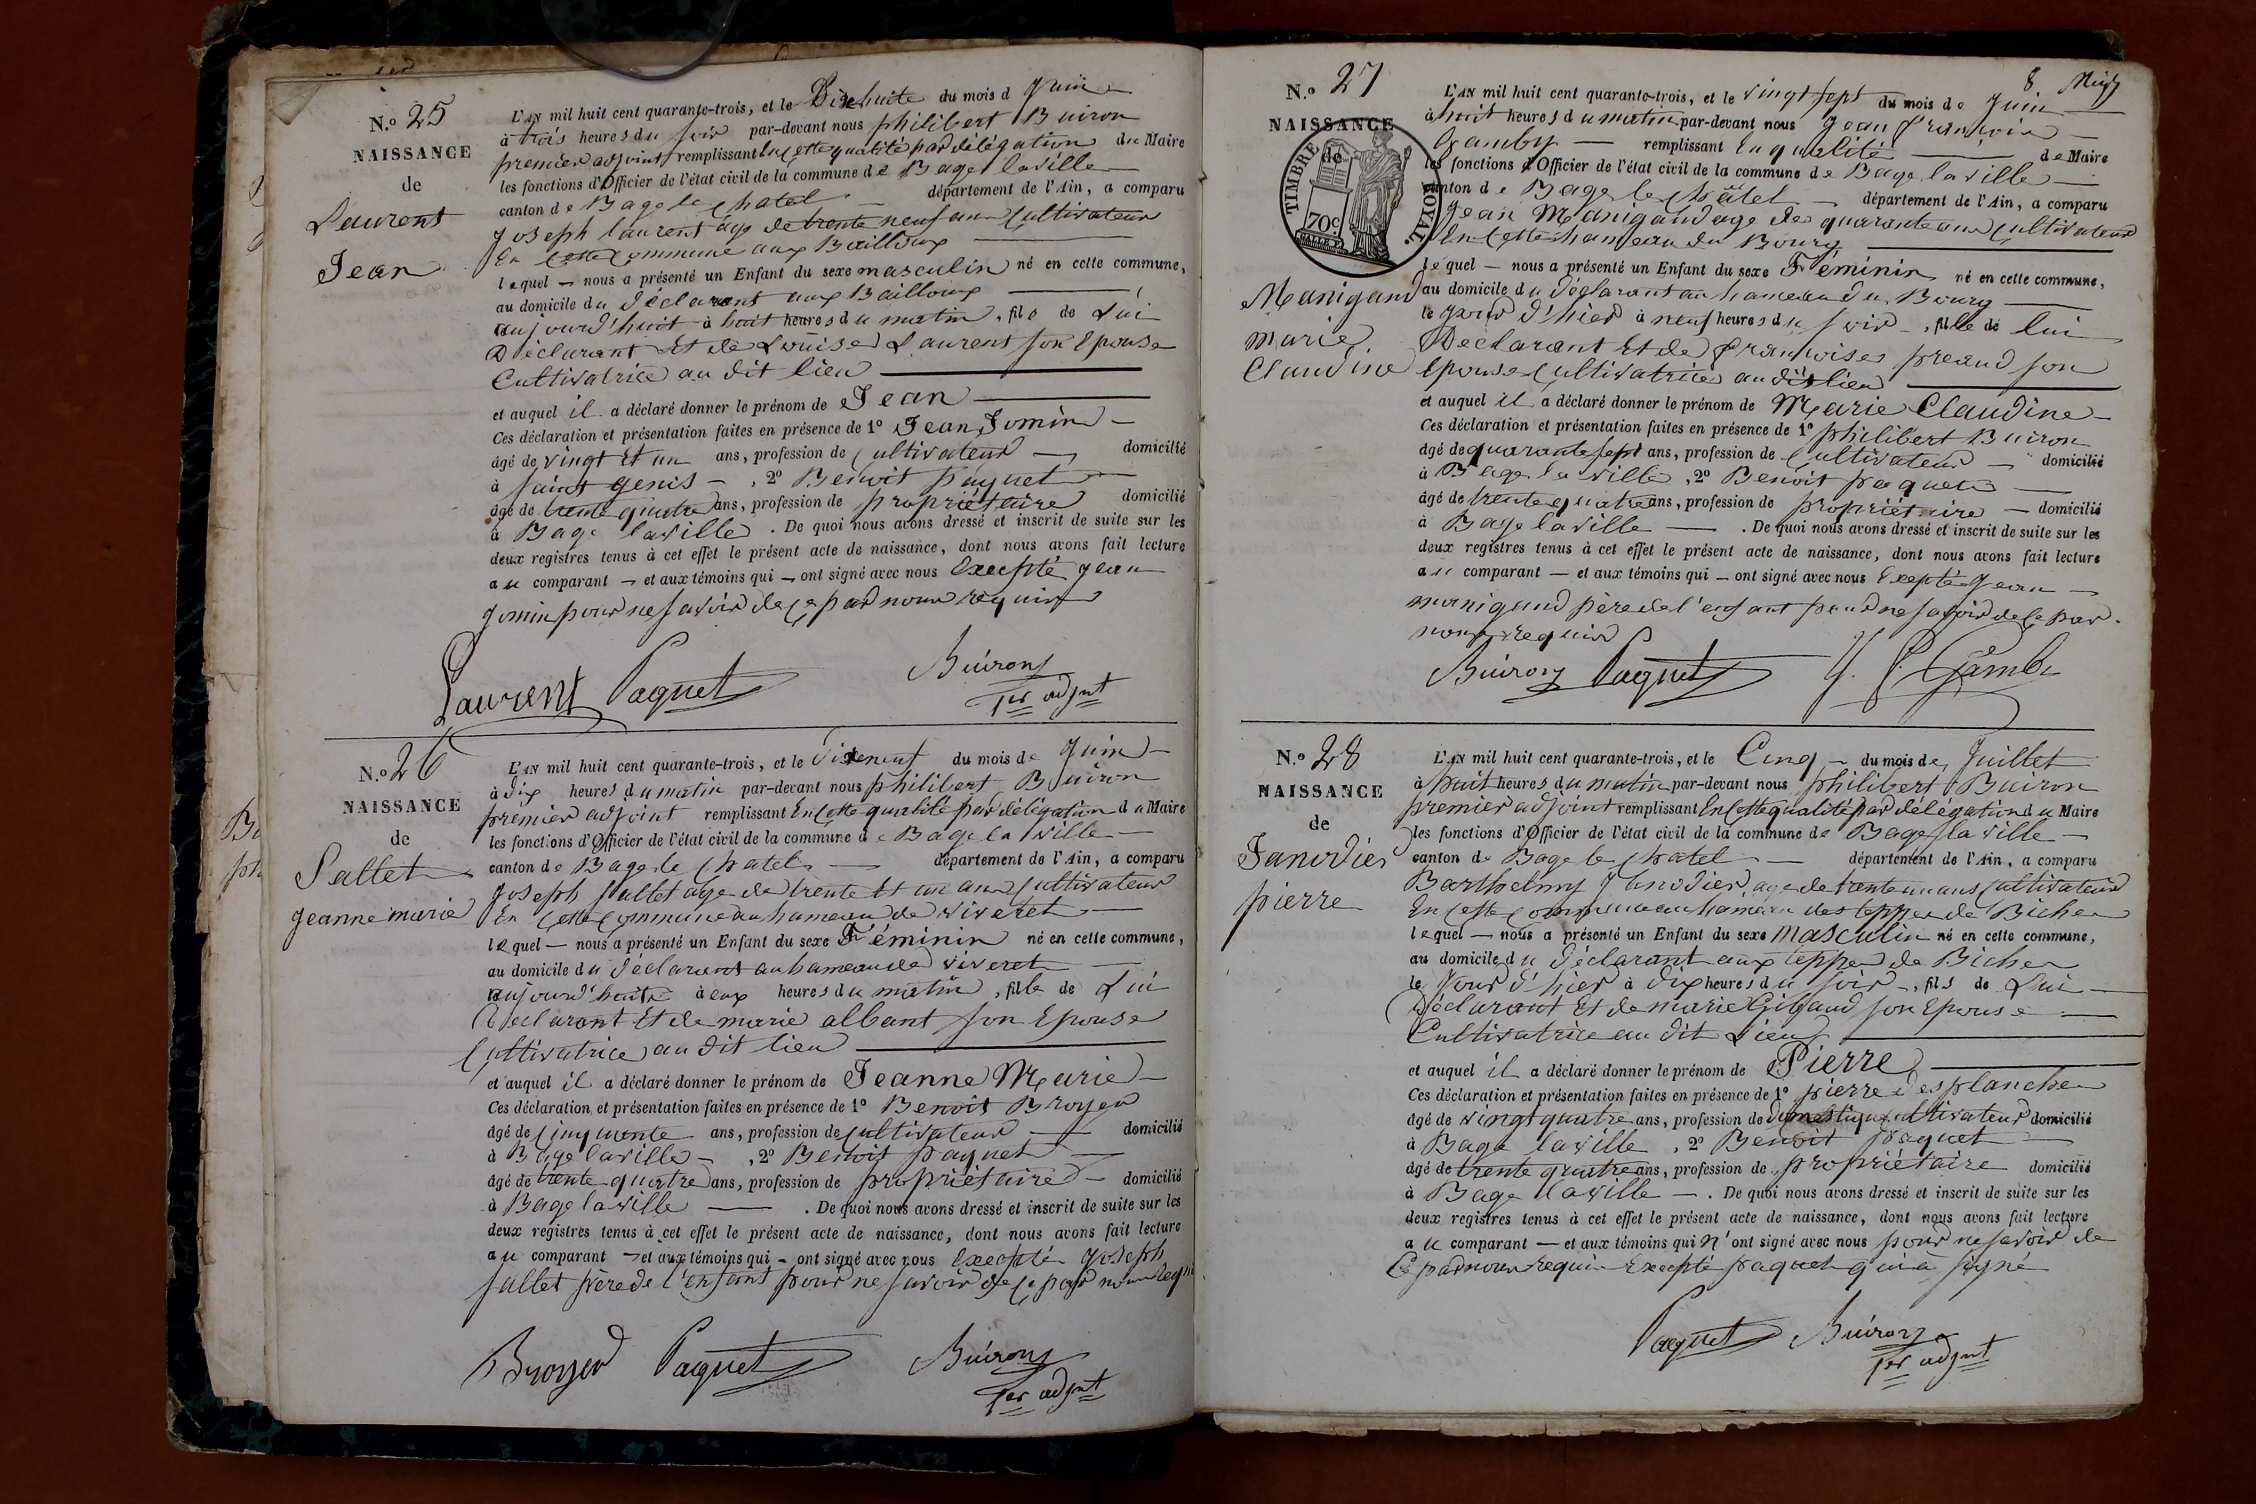 N.º 25
NAISSANCE
de
Laurent
Jean
L'AN mil huit cent quarante-trois, et le Dixhuite du mois d Juin
à trois heures du soir par-devant nous philibert Buiron
premier adjoint remplissant En cette qualité par délégation du Maire
les fonctions d'Officier de l'état civil de la commune de Bagé laville
canton de Bage le chatel département de l'Ain, a comparu
Joseph laurent âge de trente neuf ans Cultivateur
En cette Commune aux Bailloux
lequel nous a présenté un Enfant du sexe masculin né en cette commune,
au domicile du déclarant aux Bailloux
aujourd'huit à huit heures du matin, fils de Lui
Déclarant Et de Louise Laurent son Epouse
Cultivatrice au dit lieu
et auquel il a déclaré donner le prénom de Jean
Ces déclaration et présentation faites en présence de 1º Jean Jomin
âgé de vingt et un ans, profession de Cultivateur domicilié
à saint genis, 2º Benoit paquet
âgé de trente quatre ans, profession de propriétaire domicilié
à Bage laville. De quoi nous avons dressé et inscrit de suite sur les
deux registres tenus à cet effet le présent acte de naissance, dont nous avons fait lecture
au comparant et aux témoins qui ont signé avec nous Excepté jean
jomin pour ne savoir de ce par nous requis
Laurent Paquet Buiron
1er adjnt
N.º 26
NAISSANCE
de
Sallet
jeanne marie
L'AN mil huit cent quarante-trois, et le Dixneuf du mois de Juin
à dix heures du matin par-devant nous philibert Buiron
premier adjoint remplissant En cette qualité par délégation du Maire
les fonctions d'Officier de l'état civil de la commune de Bage la ville
canton de Bage le chatel département de l'Ain, a comparu
Joseph sallet age de trente Et un ans Cultivateur
En cette Commune au hameau de viveret
lequel nous a présenté un Enfant du sexe Féminin né en cette commune,
au domicile du déclarant au hameau de viveret
aujourd'huit à eux heures du matin, fille de Lui
Déclarant Et de marie albant son Epouse
Cultivatrice au dit lieu
et auquel il a déclaré donner le prénom de Jeanne Marie
Ces déclaration et présentation faites en présence de 1º Benoit Broyer
âgé de Cinquante ans, profession de Cultivateur domicilié
à Bage laville, 2º Benoit paquet
âgé de trente quatre ans, profession de propriétaire domicilié
à Bage laville. De quoi nous avons dressé et inscrit de suite sur les
deux registres tenus à cet effet le présent acte de naissance, dont nous avons fait lecture
au comparant et aux témoins qui ont signé avec nous Excepté Joseph
sallet père de l'enfant pour ne savoir de ce par nous requi
Broyer Paquet Buiron
1er adjnt
8
N.º 27
NAISSANCE
de
TIMBRE ROYAL.
70c.
Manigand
marie
Claudine
L'AN mil huit cent quarante-trois, et le vingt sept du mois de Juin
à huit heures du matin par-devant nous jean françois
Gamby remplissant En qualité de Maire
les fonctions d'Officier de l'état civil de la commune de Bage la ville
canton de Bage le châtel département de l'Ain, a comparu
jean Manigand age de quarante ans Cultivateur
En cette hameau du Bourg
lequel nous a présenté un Enfant du sexe Féminin né en cette commune,
au domicile du déclarant au hameau du Bourg
le jour d'hier à neuf heures du soir, fille de lui
Déclarant Et de françoise preaud son
Epouse Cultivatrice au dit lieu
et auquel il a déclaré donner le prénom de Marie Claudine
Ces déclaration et présentation faites en présence de 1º philibert Buiron
âgé de quarante sept ans, profession de Cultivateur domicilié
à Bage la ville, 2º Benoit paquet
âgé de trente quatre ans, profession de propriétaire domicilié
à Bage laville. De quoi nous avons dressé et inscrit de suite sur les
deux registres tenus à cet effet le présent acte de naissance, dont nous avons fait lecture
au comparant et aux témoins qui ont signé avec nous Excepté Jean
manigand père de l'enfant pour ne savoir de ce par
nous requis
Buiron Paquet J. f. Gamby
N.º 28
NAISSANCE
de
Janodier
pierre
L'AN mil huit cent quarante-trois, et le Cinq du mois de Juillet
à huit heures du matin par-devant nous philibert Buiron
premier adjoint remplissant En cette qualité par délégation du Maire
les fonctions d'Officier de l'état civil de la commune de Bage la ville
canton de Bage le chatel département de l'Ain, a comparu
Barthelmy Janodier, age de trente un ans Cultivateur
En cette commune au hameau des teppes de Biches
lequel nous a présenté un Enfant du sexe Masculin né en cette commune,
au domicile du déclarant aux teppes de Biches
le Jour d'hier à dix heures du soir, fils de Lui
Déclarant Et de marie Gigaud son Epouse
Cultivatrice au dit Lieu
et auquel il a déclaré donner le prénom de Pierre
Ces déclaration et présentation faites en présence de 1º pierre desplanches
âgé de vingt quatre ans, profession de domestique cultivateur domicilié
à Bage laville, 2º Benoit paquet
âgé de trente quatre ans, profession de propriétaire domicilié
à Bage laville. De quoi nous avons dressé et inscrit de suite sur les
deux registres tenus à cet effet le présent acte de naissance, dont nous avons fait lecture
au comparant et aux témoins qui n'ont signé avec nous pour ne savoir de
Ce par nous requis Excepté paquet qui à signé
Paquet Buiron
1er adjnt